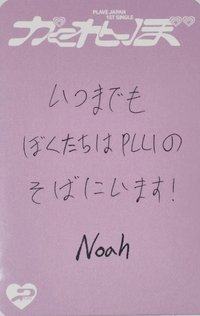 PLAVE JAPAN
1ST SINGLE
かくれんぼ
いつまでも
ぼくたちはPLLIの
そばにいます!
Noah